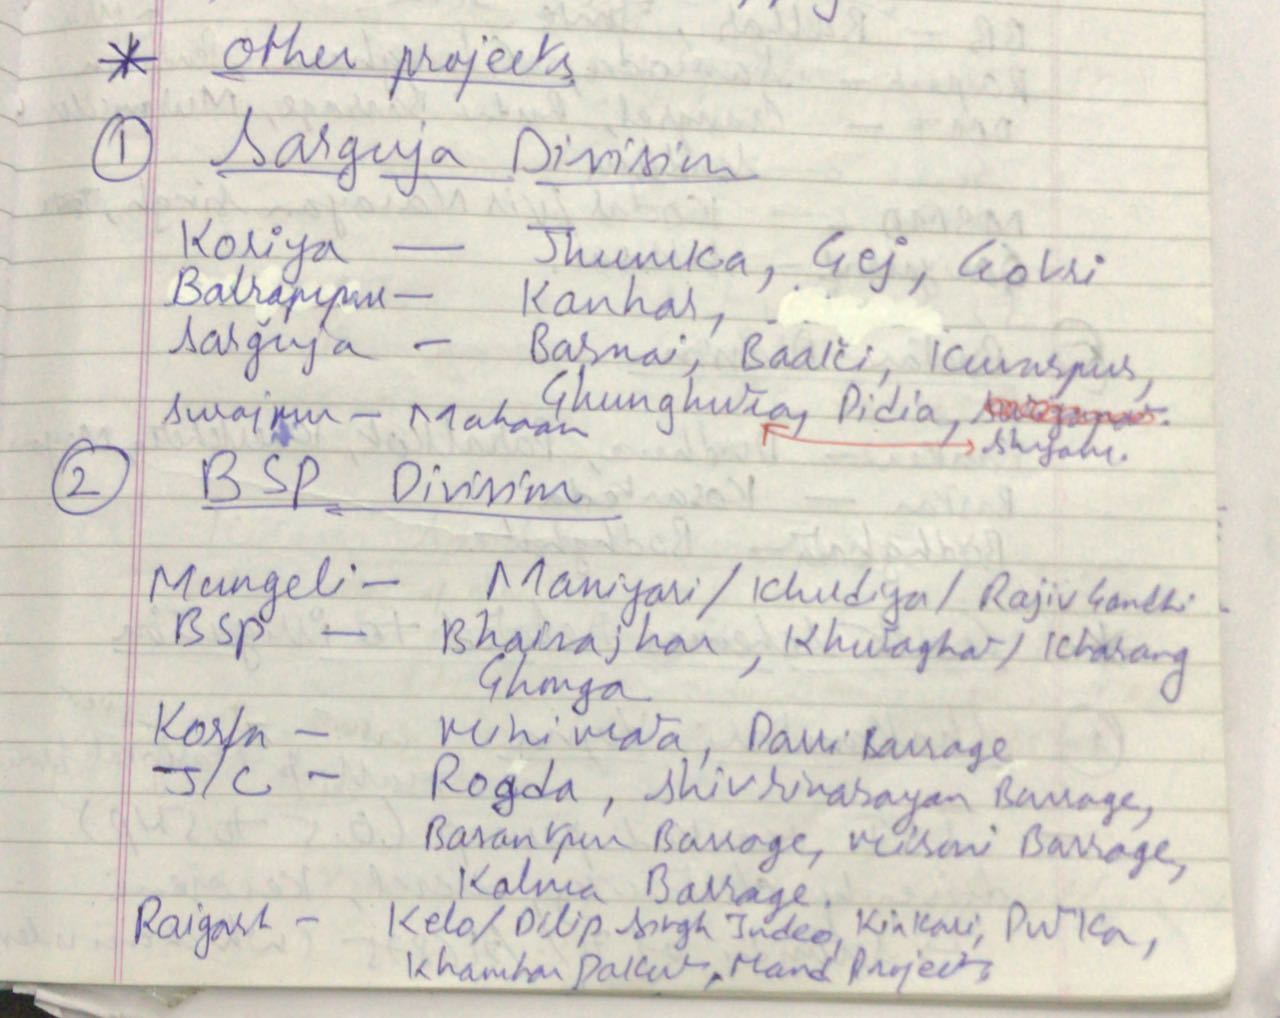 * Other projects
① Sarguja Division
Koriya — Jhumka, Gej, Gokri
Balrampur — Kanhar,
Sarguja — Barnai, Kuwarpur,
Ghunghutta, Didia,
Surajpur — Mahaan Shyam.
② BSP Division
Mungeli — Maniyari / Khudiya / Rajiv Gandhi
BSP — Bhairajhar, Khutaghat / Kharang
Ghonga
Korba — Minimata, Darri Barrage
J/C — Rogda, Shivrinarayan Barrage,
Basantpur Barrage, Barrage,
Kalma Barrage.
Raigarh — Kelo / Dilip Singh Judeo, Kinkari, Putka,
Khamhar Pakut, Mand Project